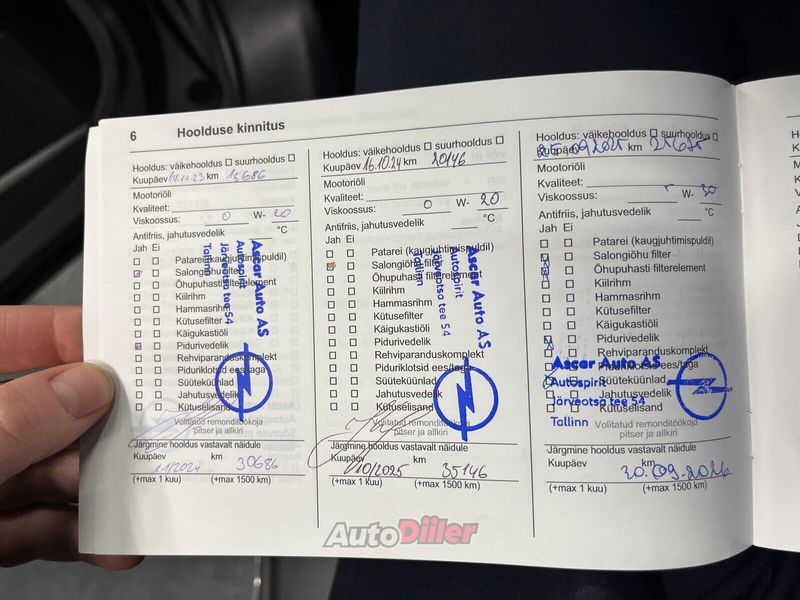 6 Hoolduse kinnitus
Hooldus: väikehooldus ☐ suurhooldus ☐
Kuupäev 14.11.23 km 15686
Mootoriõli
Kvaliteet:
Viskoossus: 0 W- 20
Antifriis, jahutusvedelik °C
Jah Ei
Patarei (kaugjuhtimispuldil)
Salongiõhu filter
Õhupuhasti filterelement
Kiilrihm
Hammasrihm
Kütusefilter
Käigukastiõli
Pidurivedelik
Rehviparanduskomplekt
Piduriklotsid ees/taga
Süüteküünlad
Jahutusvedelik
Kütuselisand
Ascar Auto AS
Autospirit
Järveotsa tee 54
Tallinn
Volitatud remonditöökoja
pitser ja allkiri
Järgmine hooldus vastavalt näidule
Kuupäev km
11/2024 30686
(+max 1 kuu) (+max 1500 km)
Hooldus: väikehooldus ☐ suurhooldus ☐
Kuupäev 16.10.24 km 20146
Mootoriõli
Kvaliteet:
Viskoossus: 0 W- 20
Antifriis, jahutusvedelik °C
Jah Ei
Patarei (kaugjuhtimispuldil)
Salongiõhu filter
Õhupuhasti filterelement
Kiilrihm
Hammasrihm
Kütusefilter
Käigukastiõli
Pidurivedelik
Rehviparanduskomplekt
Piduriklotsid ees/taga
Süüteküünlad
Jahutusvedelik
Kütuselisand
Ascar Auto AS
Autospirit
Järveotsa tee 54
Tallinn
Volitatud remonditöökoja
pitser ja allkiri
Järgmine hooldus vastavalt näidule
Kuupäev km
10/2025 35146
(+max 1 kuu) (+max 1500 km)
Hooldus: väikehooldus ☐ suurhooldus ☐
Kuupäev 25.09.2025 km 21675
Mootoriõli
Kvaliteet:
Viskoossus: W- 30
Antifriis, jahutusvedelik °C
Jah Ei
Patarei (kaugjuhtimispuldil)
Salongiõhu filter
Õhupuhasti filterelement
Kiilrihm
Hammasrihm
Kütusefilter
Käigukastiõli
Pidurivedelik
Rehviparanduskomplekt
Piduriklotsid ees/taga
Süüteküünlad
Jahutusvedelik
Kütuselisand
Ascar Auto AS
Autospirit
Järveotsa tee 54
Tallinn
Volitatud remonditöökoja
pitser ja allkiri
Järgmine hooldus vastavalt näidule
Kuupäev km
30.09.2026
(+max 1 kuu) (+max 1500 km)
AutoDiiler